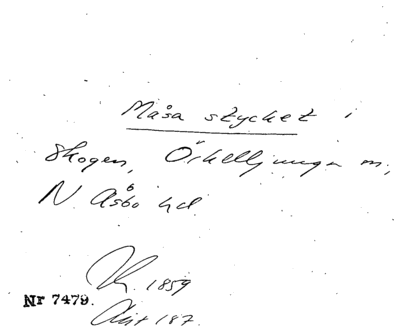 Måsa stycket i
Skogen, Örkelljunga sn,
N Åsbo hd.
1859
Nr 7479.
Akt 187.